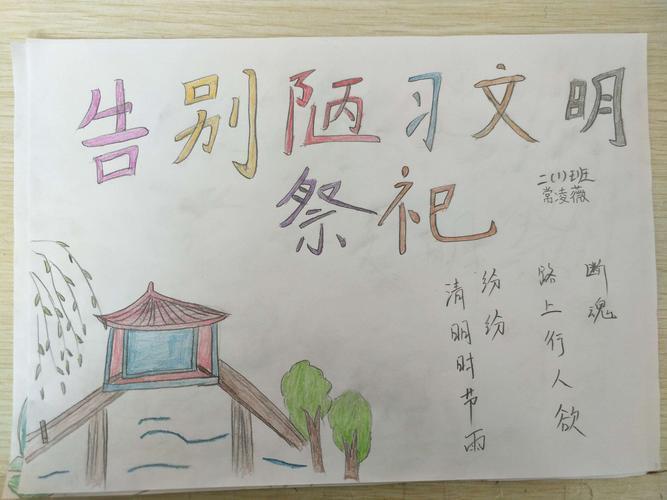 告别陋习文明
祭祀
二(1)班
常凌薇
清明时节雨
纷纷
路上行人欲
断魂